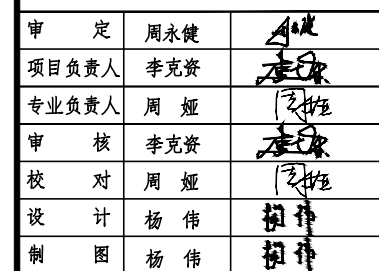 审 定 周永健
项目负责人 李克资 李克资
专业负责人 周 娅 周娅
审 核 李克资 李克资
校 对 周 娅 周娅
设 计 杨 伟 杨伟
制 图 杨 伟 杨伟